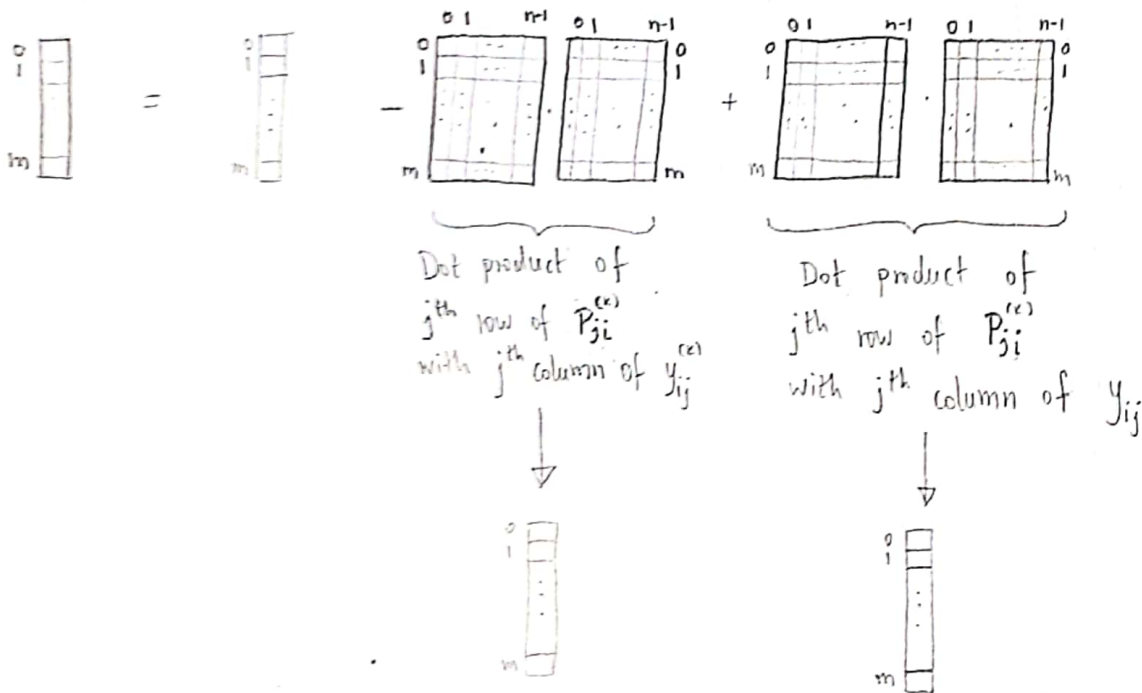 0 1 n-1 0 1 n-1 0 1 n-1 0 1 n-1
0 0 0 0 0 0
1 = 1 - 1 · 1 + 1 · 1
m m m m m m
Dot product of
jth row of P_ji^(k)
with jth column of y_ij^(k)
Dot product of
jth row of P_ji^(k)
with jth column of y_ij
0
1
m
0
1
m